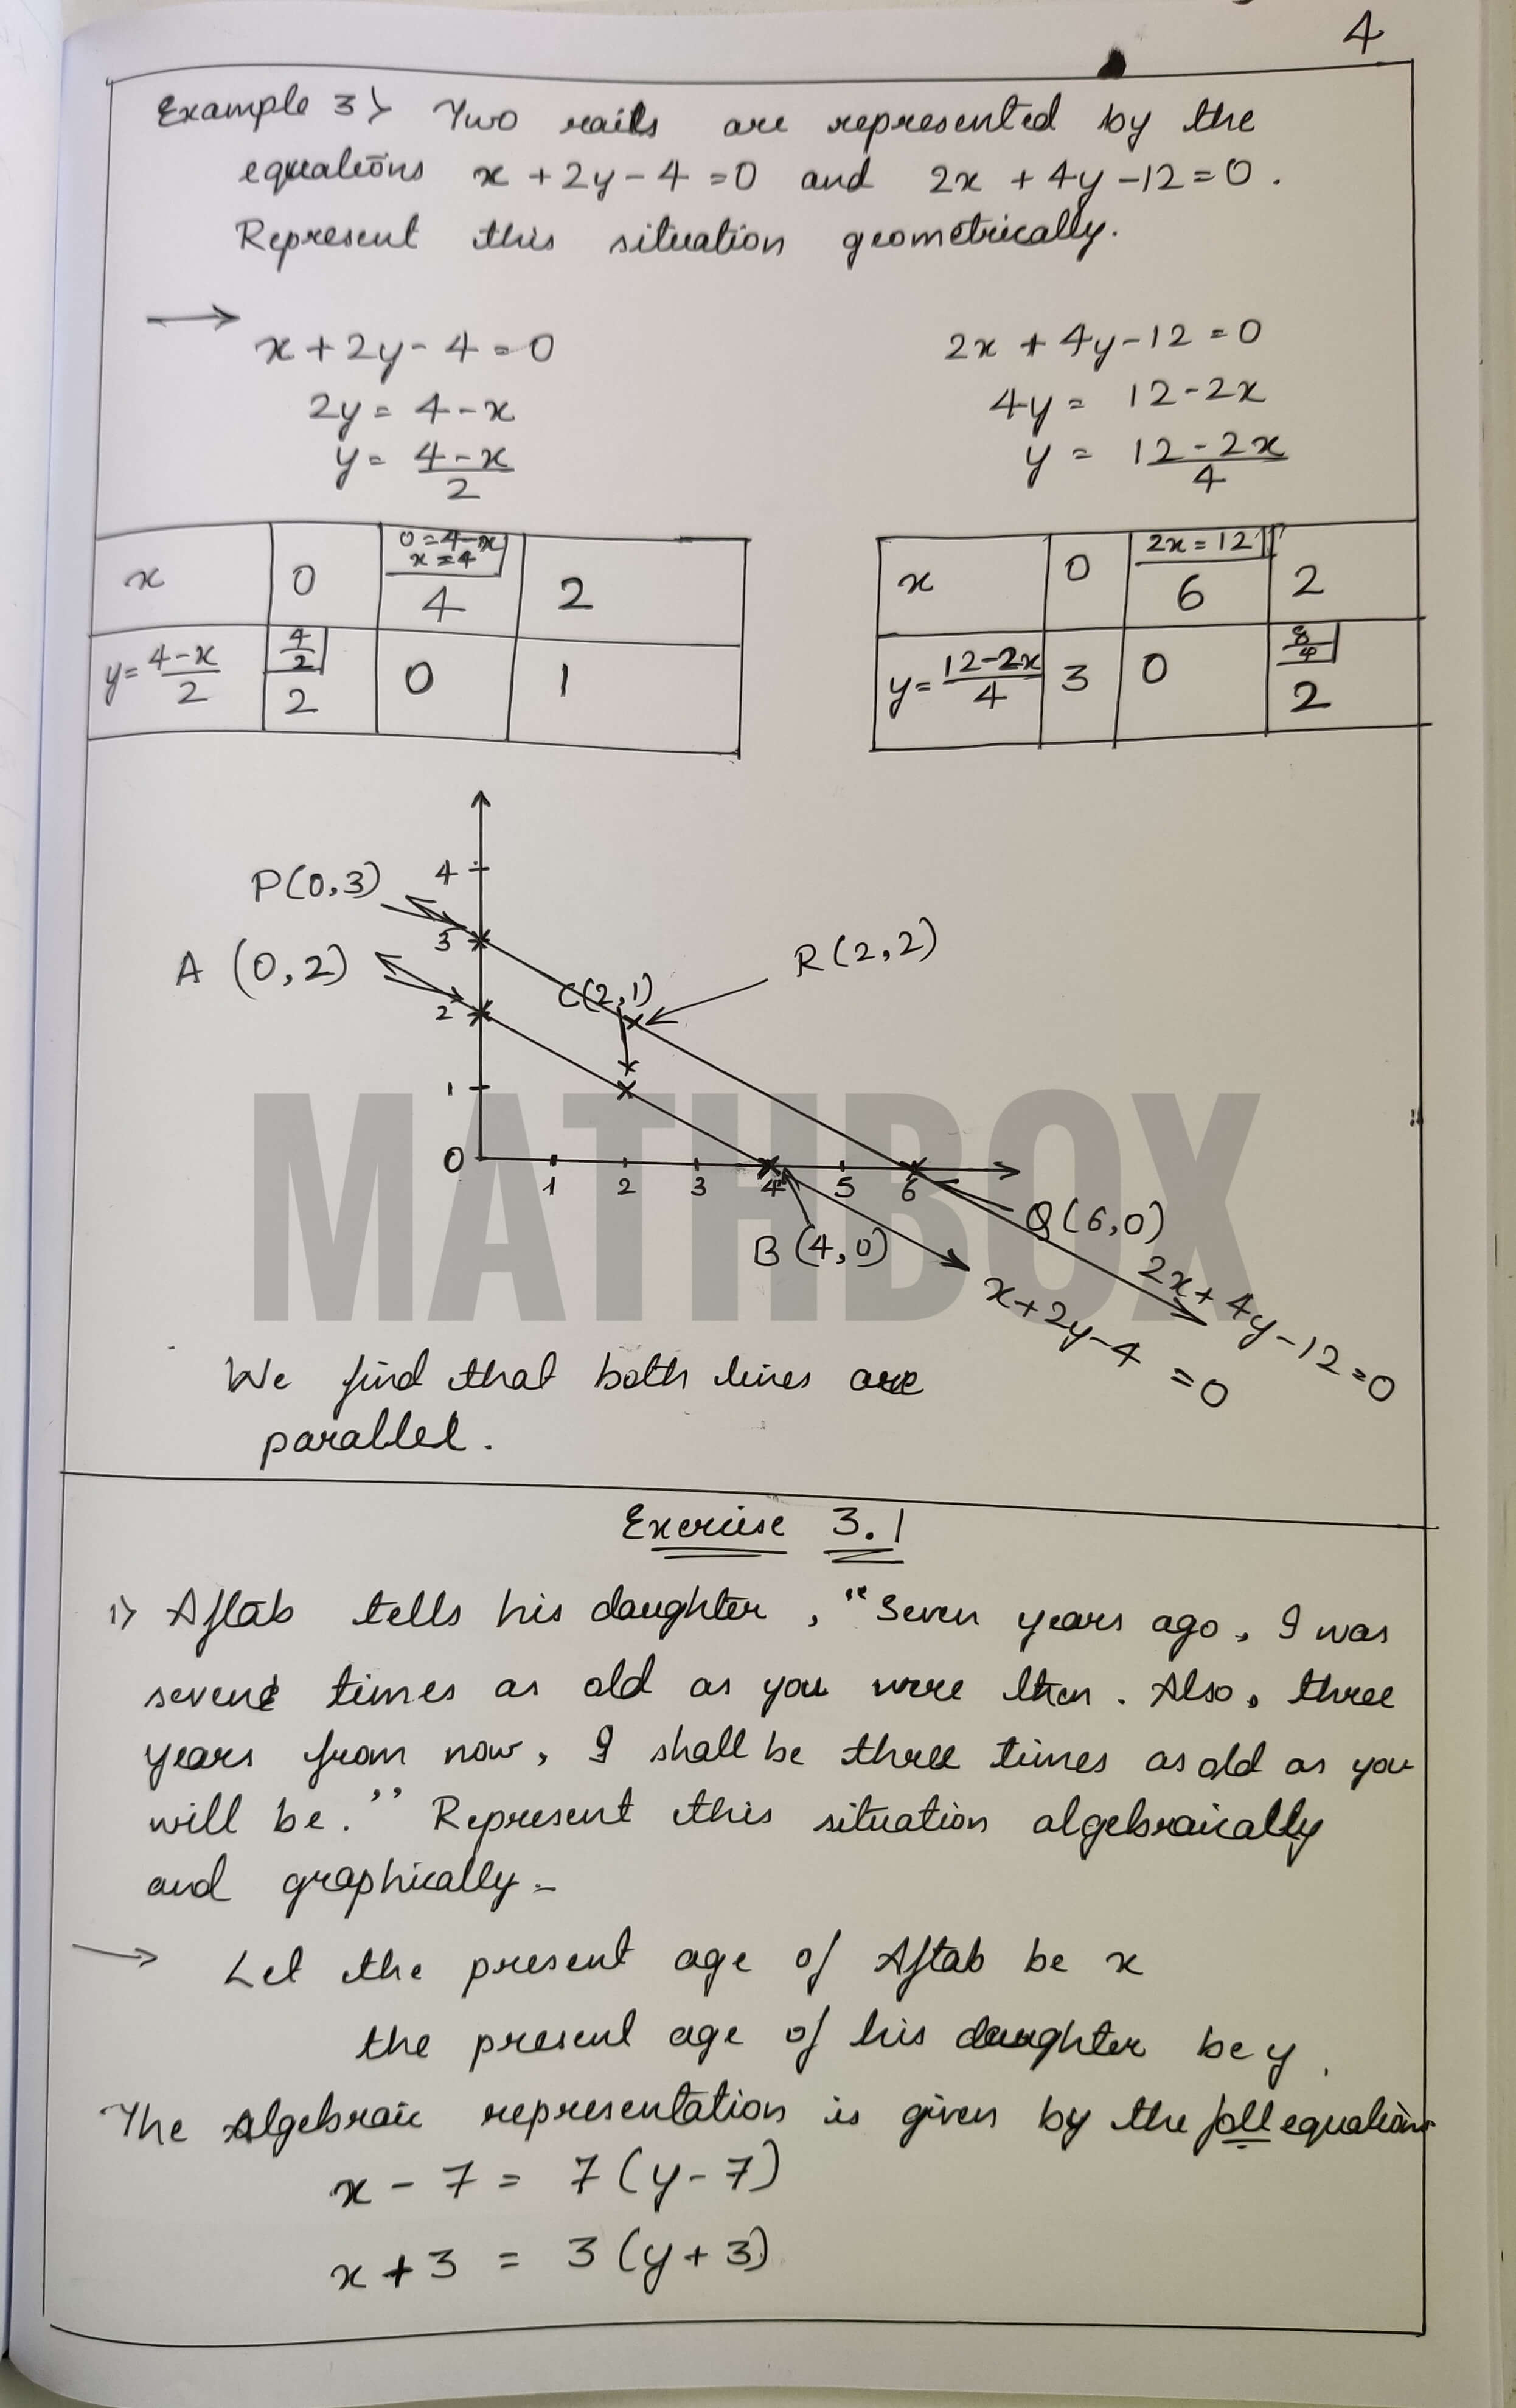 4
Example 3> Two rails are represented by the
equations x + 2y - 4 = 0 and 2x + 4y - 12 = 0.
Represent this situation geometrically.
x + 2y - 4 = 0
2y = 4 - x
y = (4 - x)/2
2x + 4y - 12 = 0
4y = 12 - 2x
y = (12 - 2x)/4
x | 0 | 0 = 4 - x x = 4 4 | 2
y = (4 - x)/2 | 4/2 2 | 0 | 1
x | 0 | 2x = 12 6 | 2
y = (12 - 2x)/4 | 3 | 0 | 8/4 2
4
P(0,3)
3
A (0,2)
R(2,2)
C(2,1)
2
1
0 1 2 3 4 5 6
Q(6,0)
B(4,0)
2x + 4y - 12 = 0
x + 2y - 4 = 0
MATHBOX
We find that both lines are
parallel.
Exercise 3.1
1> Aftab tells his daughter, "Seven years ago, I was
seven times as old as you were then. Also, three
years from now, I shall be three times as old as you
will be." Represent this situation algebraically
and graphically.
Let the present age of Aftab be x
the present age of his daughter be y.
The Algebraic representation is given by the foll equations
x - 7 = 7(y - 7)
x + 3 = 3(y + 3)